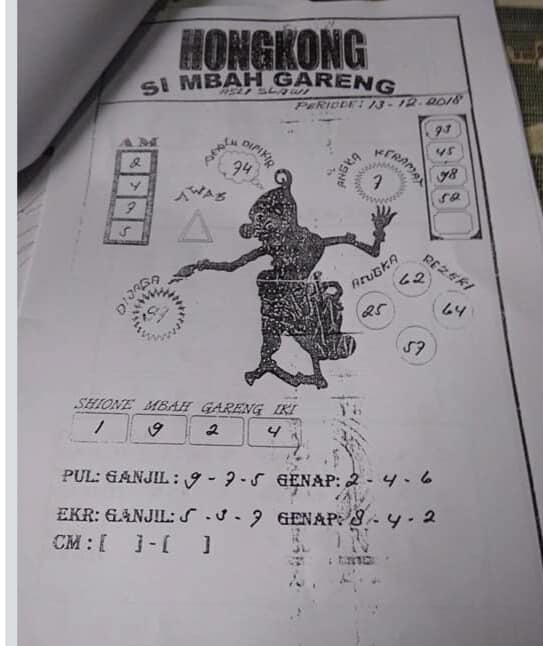 HONGKONG
SI MBAH GARENG
ASLI SLAWI
PERIODE: 13-12-2018
AM
2
4
7
5
SELALU DIPIKIR
74
ANGKA KERAMAT
7
73
45
98
52
AWAS
DIJAGA
97
ANGKA REZEKI
62
25
64
57
SHIONE MBAH GARENG IKI
1 9 2 4
PUL: GANJIL: 9-7-5 GENAP: 2-4-6
EKR: GANJIL: 5-3-7 GENAP: 8-4-2
CM : [ ] - [ ]